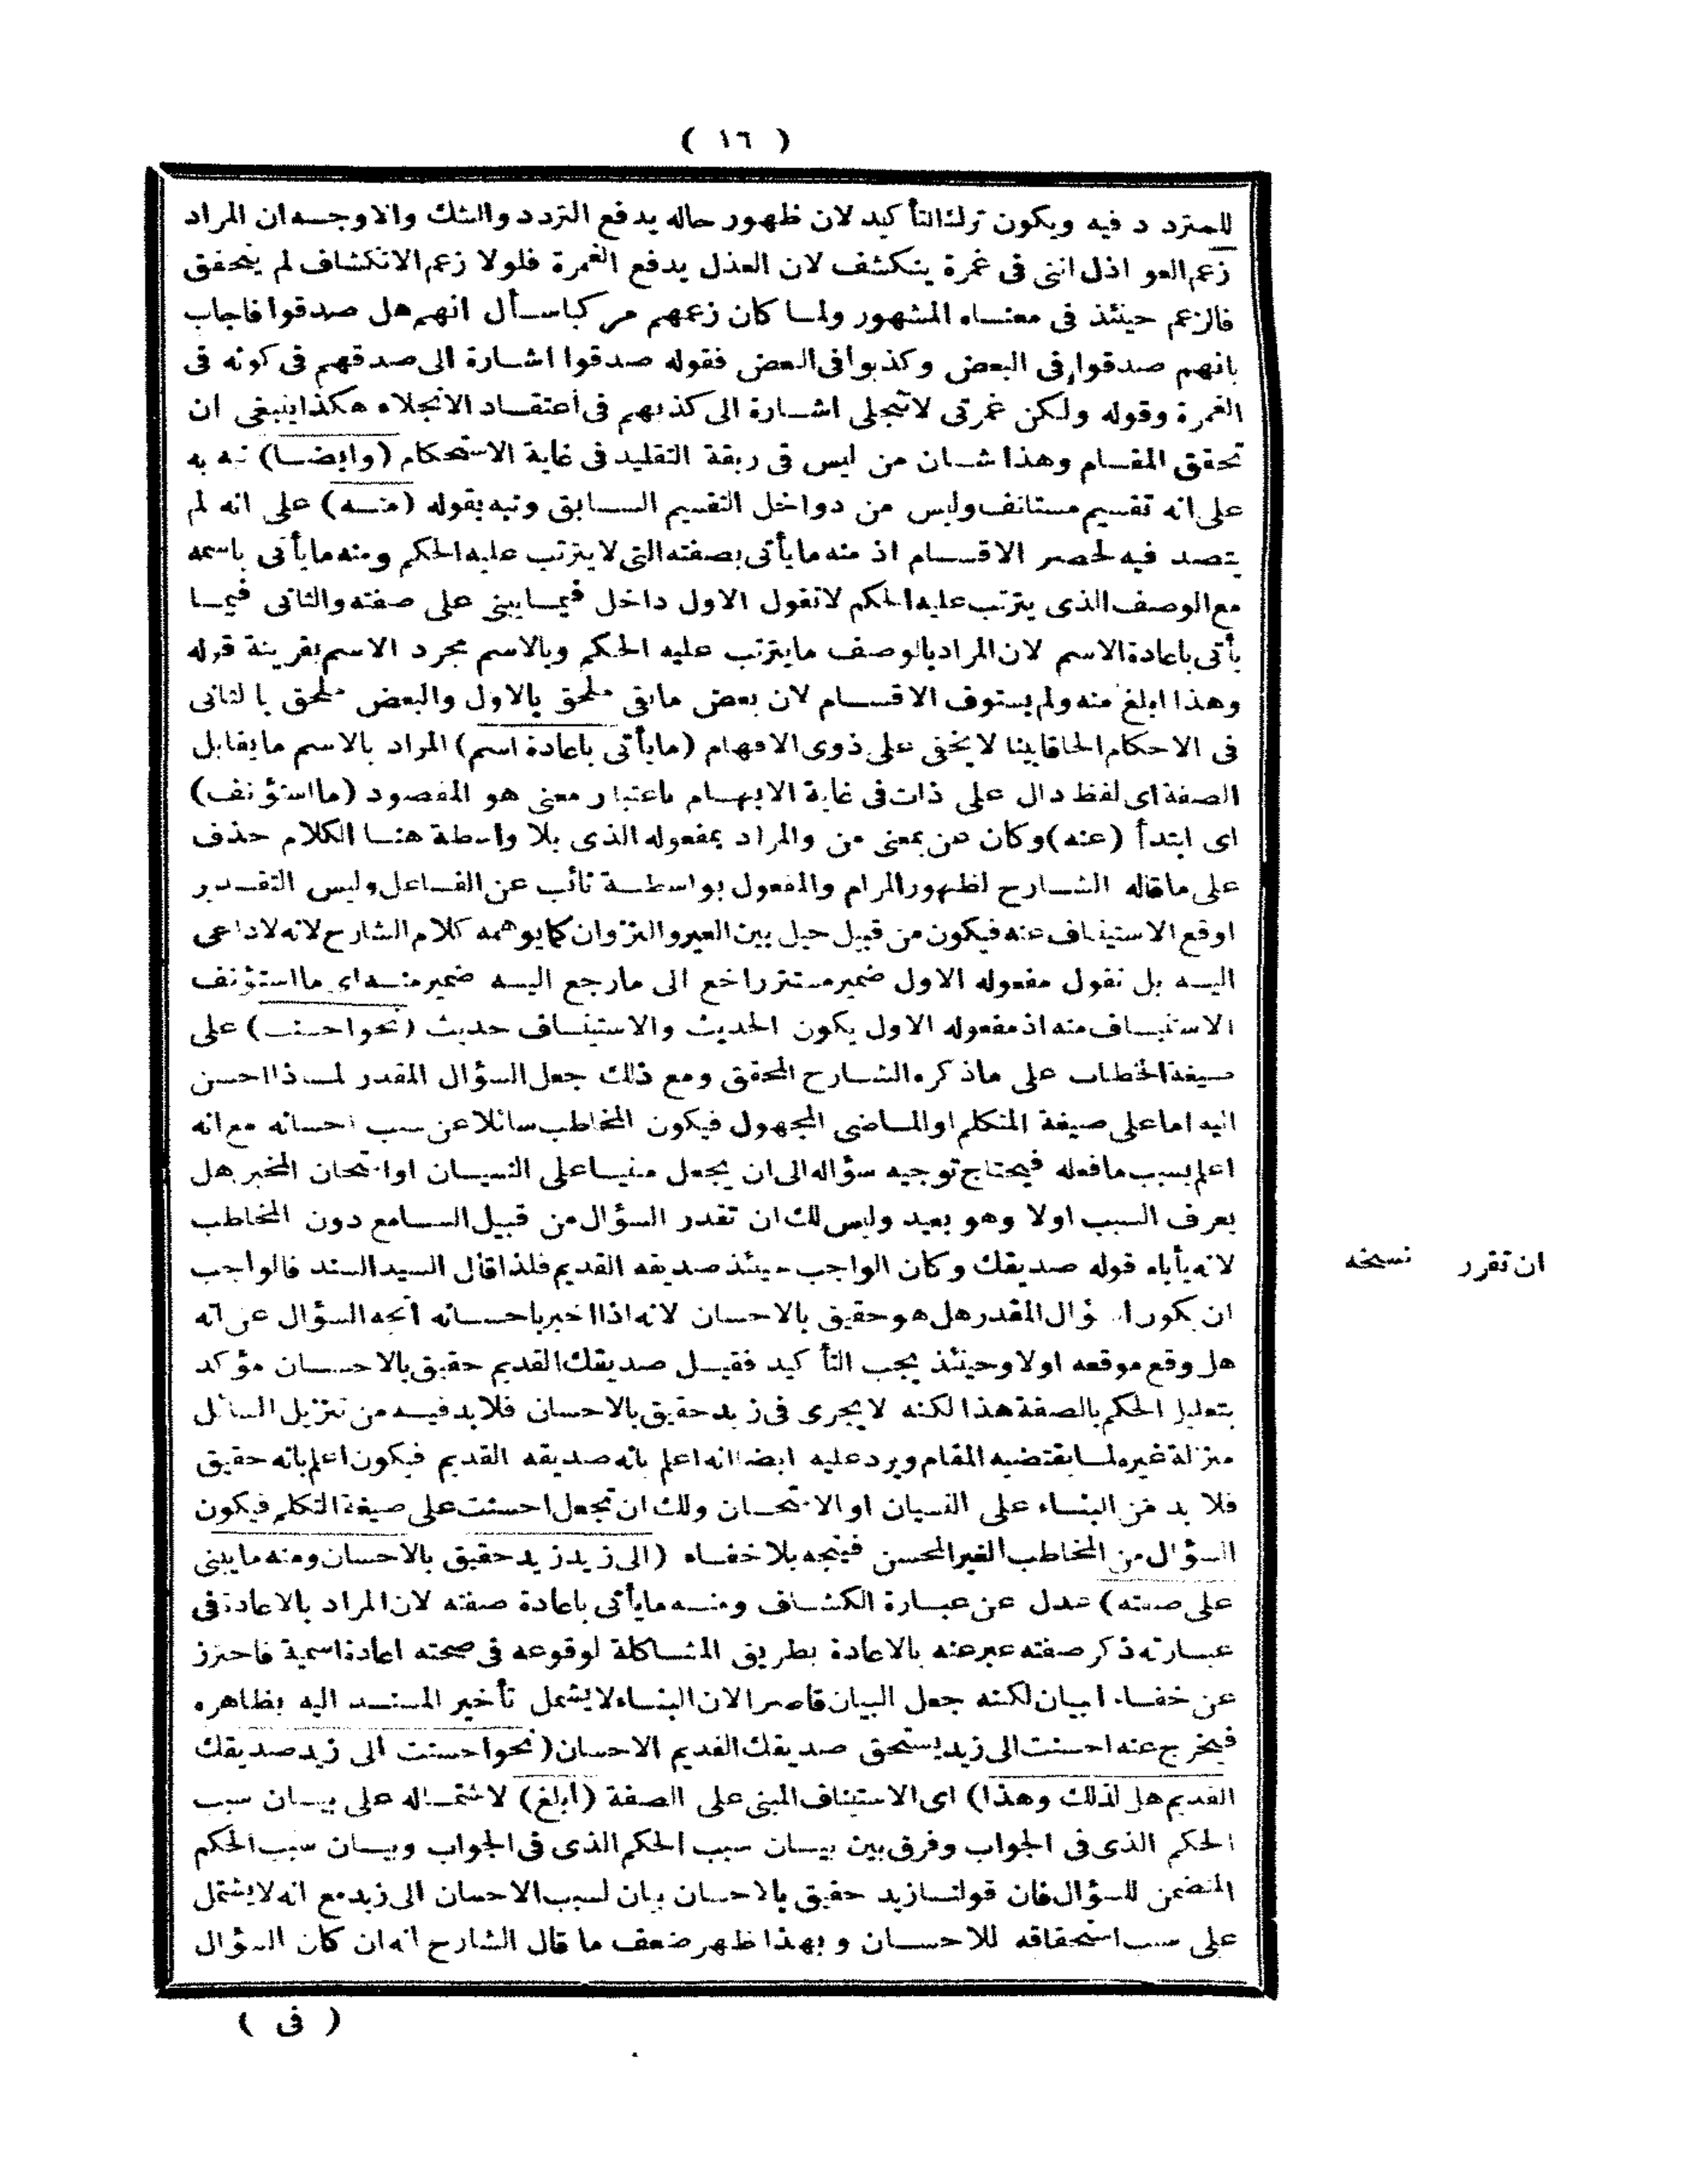 ( ١٦ )
للمتردد فيه ويكون ترك التأكيد لان ظهور حاله يدفع التردد والشك والاوجه ان المراد
زعم العواذل اننى فى غمرة ينكشف لان العذل يدفع الغمرة فلولا زعم الانكشاف لم يتحقق
فالزعم حينئذ فى معناه المشهور ولما كان زعمهم مركبا سأل انهم هل صدقوا فاجاب
بانهم صدقوا فى البعض وكذبوا فى البعض فقوله صدقوا اشارة الى صدقهم فى كونه فى
الغمرة وقوله ولكن غمرتى لا تنجلى اشارة الى كذبهم فى اعتقاد الانجلاء هكذا ينبغى ان
تحقق المقام وهذا شان من ليس فى ربقة التقليد فى غاية الاستحكام (وايضا) نبه به
على انه تقسيم مستانف وليس من دواخل التقسيم السابق ونبه بقوله (منه) على انه لم
يتصد فيه لحصر الاقسام اذ منه ما يأتى بصفته التى لا يترتب عليه الحكم ومنه ما يأتى باسمه
مع الوصف الذى يترتب عليه الحكم لا تقول الاول داخل فيما يبنى على صفته والثانى فيما
يأتى باعادة الاسم لان المراد بالوصف ما يترتب عليه الحكم وبالاسم مجرد الاسم بقرينة قوله
وهذا ابلغ منه ولم يستوف الاقسام لان بعض ما بقى ملحق بالاول والبعض ملحق بالثانى
فى الاحكام الحاقا بينا لا يخفى على ذوى الافهام (ما يأتى باعادة اسم) المراد بالاسم ما يقابل
الصفة اى لفظ دال على ذات فى غاية الابهام باعتبار معنى هو المقصود (ما استؤنف)
اى ابتدأ (عنه) وكان عن بمعنى من والمراد بمفعوله الذى بلا واسطة هنا الكلام حذف
على ما قاله الشارح لظهور المرام والمفعول بواسطة نائب عن الفاعل وليس التقدير
اوقع الاستيناف عنه فيكون من قبيل حيل بين العير والنزوان كما يوهمه كلام الشارح لانه لا داعى
اليه بل نقول مفعوله الاول ضمير مستتر راجع الى ما رجع اليه ضمير منه اى ما استؤنف
الاستيناف منه اذ مفعوله الاول يكون الحديث والاستيناف حديث (نحو احسنت) على
صيغة الخطاب على ما ذكره الشارح المحقق ومع ذلك جعل السؤال المقدر لماذا احسن
اليه اما على صيغة المتكلم او الماضى المجهول فيكون المخاطب سائلا عن سبب احسانه مع انه
اعلم بسبب ما فعله فيحتاج توجيه سؤاله الى ان يجعل مبنيا على النسيان او امتحان المخبر هل
يعرف السبب اولا وهو بعيد وليس لك ان تقدر السؤال من قبيل السامع دون المخاطب
لانه يأباه قوله صديقك وكان الواجب حينئذ صديقه القديم فلذا قال السيد السند فالواجب
ان يكون السؤال المقدر هل هو حقيق بالاحسان لانه اذا اخبر باحسانه اتجه السؤال عن انه
هل وقع موقعه اولا وحينئذ يجب التأكيد فقيل صديقك القديم حقيق بالاحسان مؤكد
بتعليل الحكم بالصفة هذا لكنه لا يجرى فى زيد حقيق بالاحسان فلا بد فيه من تنزيل السائل
منزلة غيره لما يقتضيه المقام ويرد عليه ايضا انه اعلم بانه صديقه القديم فيكون اعلم بانه حقيق
فلا بد من البناء على النسيان او الامتحان ولك ان تجعل احسنت على صيغة التكلم فيكون
السؤال من المخاطب الغير المحسن فيتجه بلا خفاء (الى زيد زيد حقيق بالاحسان ومنه ما يبنى
على صفته) عدل عن عبارة الكشاف ومنه ما يأتى باعادة صفته لان المراد بالاعادة فى
عبارته ذكر صفته عبر عنه بالاعادة بطريق المشاكلة لوقوعه فى صحبته اعادة اسمية فاحترز
عن خفاء البيان لكنه جعل البيان قاصرا لان البناء لا يشمل تأخير المسند اليه بظاهره
فيخرج عنه احسنت الى زيد يستحق صديقك القديم الاحسان (نحو احسنت الى زيد صديقك
القديم هل لذلك وهذا) اى الاستيناف المبنى على الصفة (ابلغ) لاشتماله على بيان سبب
الحكم الذى فى الجواب وفرق بين بيان سبب الحكم الذى فى الجواب وبيان سبب الحكم
المتضمن للسؤال فان قولنا زيد حقيق بالاحسان بيان لسبب الاحسان الى زيد مع انه لا يشتمل
على سبب استحقاقه للاحسان وبهذا ظهر ضعف ما قال الشارح انه ان كان السؤال
ان تقرر نسخه
( فى )